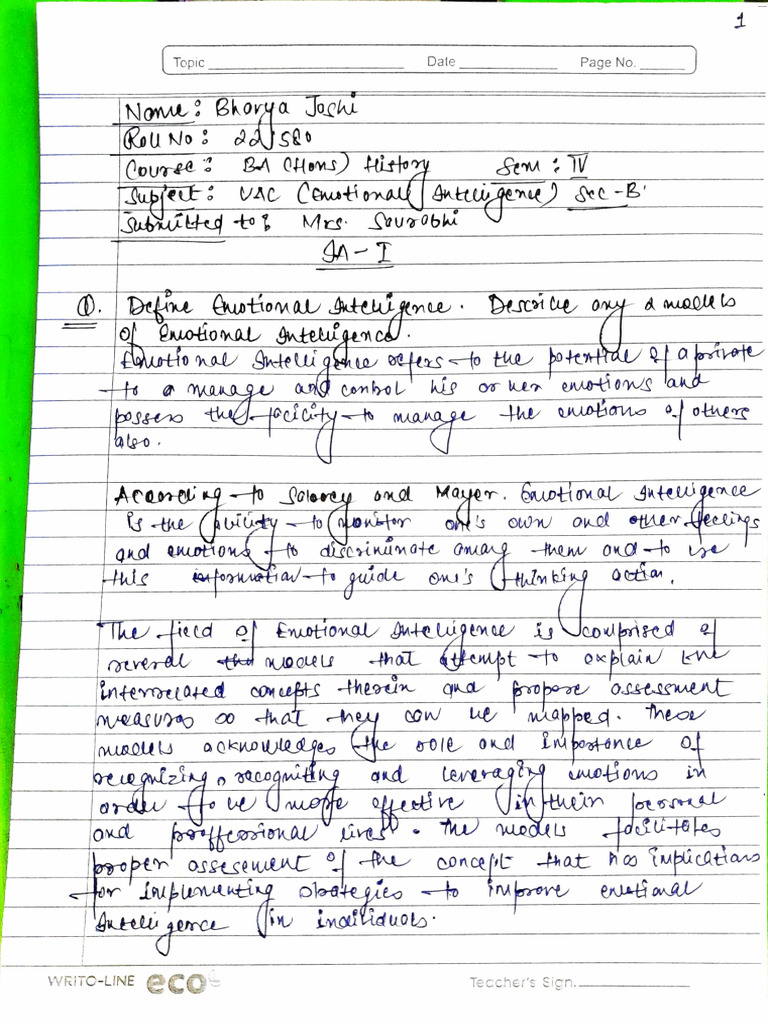 1
Topic Date Page No.
Name: Bhavya Joshi
Roll No: 22/580
Course: BA (Hons) History Sem: IV
Subject: VAC (Emotional Intelligence) Sec-B
Submitted to: Mrs. Sourabhi
IA-I
①. Define Emotional Intelligence. Describe any 2 models
of Emotional Intelligence.
Emotional Intelligence refers to the potential of a private
to a manage and control his or her emotions and
possess the facility to manage the emotions of others
also.
According to Salovey and Mayer. Emotional Intelligence
is the ability to monitor one's own and other feelings
and emotions to discriminate among them and to use
this information to guide one's thinking action.
The field of Emotional Intelligence is comprised of
several the models that attempt to explain the
interrelated concepts therein and propose assessment
measures so that they can be mapped. These
models acknowledges the role and importance of
recognizing, recogniting and leveraging emotions in
order to be more effective in their personal
and proffessional lives. The models facilitates
proper assesement of the concept that has implications
for implementing strategies to improve emotional
Intelligence in individuals.
WRITO-LINE eco Teacher's Sign.